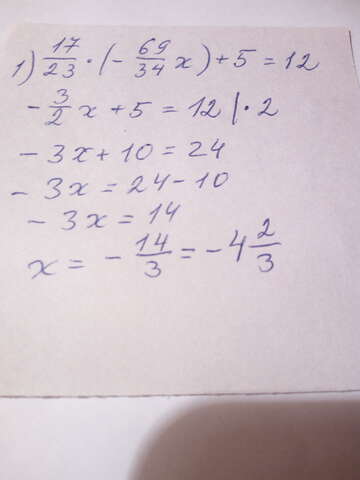 1) 17/23 · (- 69/34 x) + 5 = 12
- 3/2 x + 5 = 12 | · 2
- 3x + 10 = 24
- 3x = 24 - 10
- 3x = 14
x = - 14/3 = - 4 2/3